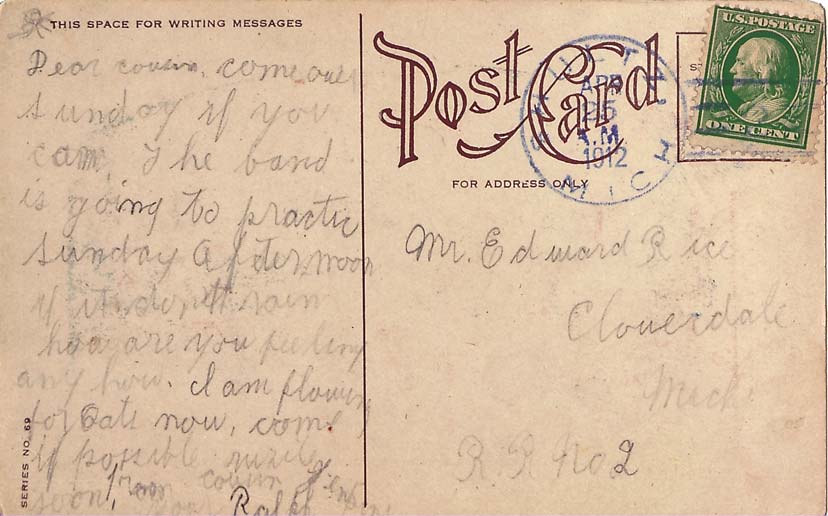 THIS SPACE FOR WRITING MESSAGES
Dear cousin, come over
sunday if you
can, The band
is going to practic
sunday afternoon
if it don't rain
how are you feeling
any how. I am plowin
for Oats now, come
if possible
soon, from cousin
Ralph
SERIES NO. 69
Post Card
FOR ADDRESS ONLY
APR
25
A.M.
1912
MICH
U.S. POSTAGE
ONE CENT
Mr. Edward Rice
Cloverdale
Mich
No 2